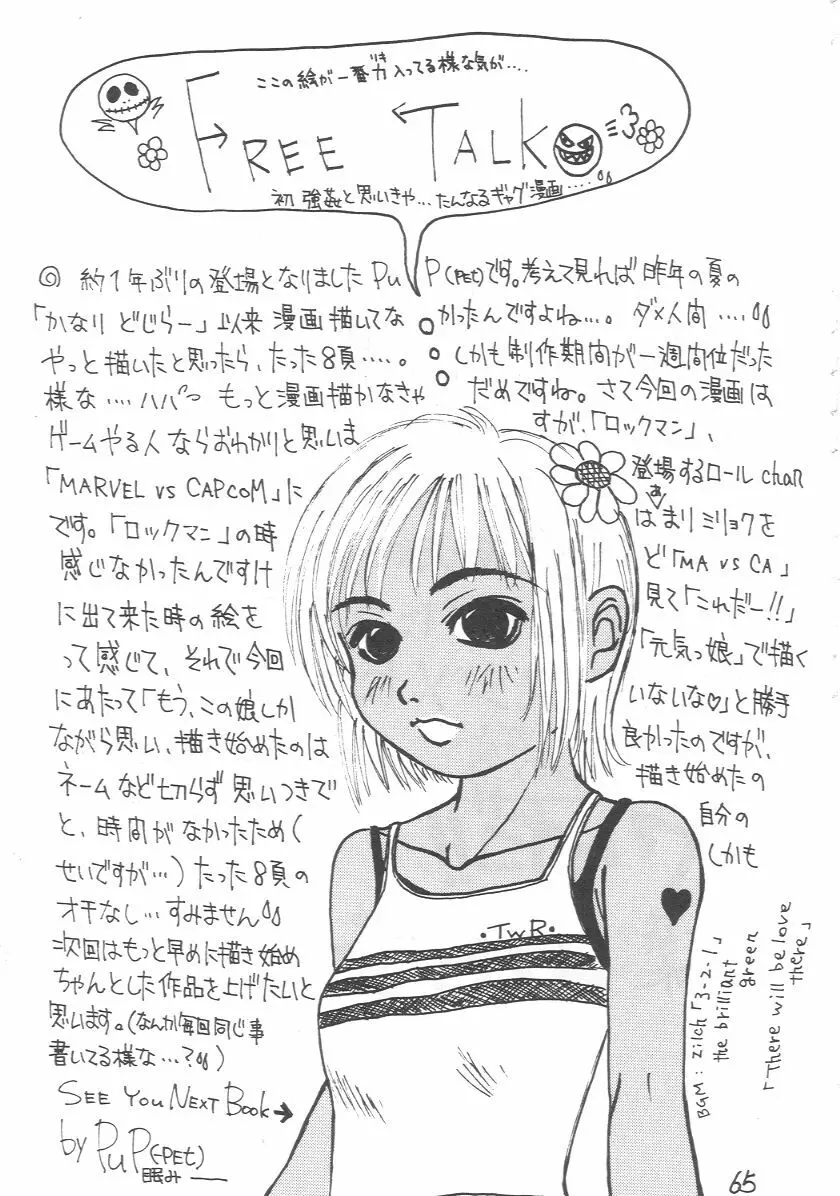 ここの絵が一番力入ってる様な気が....
FREE TALK
初 強姦と思いきや...たんなるギャグ漫画....
◎ 約1年ぶりの登場となりました PuP(PEt)です。考えて見れば昨年の夏の
「かなり どじらー」以来 漫画描いてなかったんですよね...。ダメ人間....
やっと描いたと思ったら、たった8頁....。しかも制作期間が一週間位だった
様な....ハハハ もっと漫画描かなきゃだめですね。さて今回の漫画は
ゲームやる人ならおわかりと思いますが、「ロックマン」、
「MARVEL vs CAPCOM」に登場するロール chan
です。「ロックマン」の時はあまりミリョクを
感じなかったんですけど「MA vs CA」
に出て来た時の絵を見て「これだー!!」
って感じて、それで今回「元気っ娘」で描く
にあたって「もう、この娘しかいないな♡」と勝手
ながら思い、描き始めたのは良かったのですが、
ネームなど切らず思いつきで描き始めたの
と、時間がなかったため(自分の
せいですが...)たった8頁のしかも
オチなし...すみません
次回はもっと早めに描き始め
ちゃんとした作品を上げたいと
思います。(なんか毎回同じ事
書いてる様な...?)
SEE YOU NEXT BOOK→
by PuP(-PEt)
眠み——
・TWR・
BGM: zilch「3-2-1」
the brilliant
green
「There will be love
there」
65